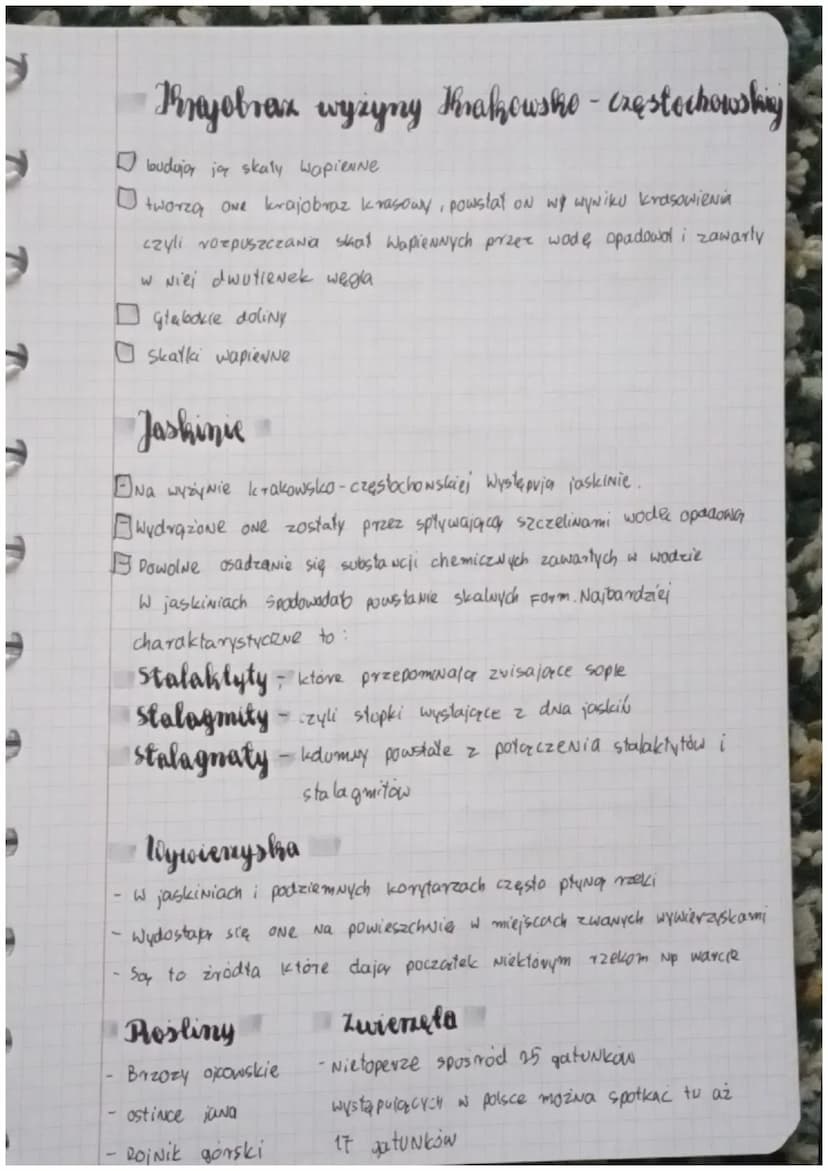 Krajobraz wyżyny Krakowsko - częstochowskiej
budują ją skały wapienne
tworzą one krajobraz krasowy, powstał on w wyniku krasowienia
czyli rozpuszczania skał wapiennych przez wodę opadową i zawarty
w niej dwutlenek węgla
głębokie doliny
skałki wapienne
Jaskinie
Na wyżynie krakowsko-częstochowskiej występują jaskinie.
Wydrążone one zostały przez spływającą szczelinami wodę opadową
Powolne osadzanie się substancji chemicznych zawartych w wodzie
w jaskiniach spodowadało powstanie skalnych form. Najbardziej
charaktarystyczne to:
Stalaktyty - które przepominają zwisające sople
Stalagmity - czyli słupki wystające z dna jaskiń
Stalagnaty - kolumny powstałe z połączenia stalaktytów i
stalagmitów
Wywierzyska
- w jaskiniach i podziemnych korytarzach często płyną rzeki
- Wydostają się one na powieszchnie w miejscach zwanych wywierzyskami
- Są to źródła które dają początek niektórym rzekom np warcie
Rośliny Zwierzęta
- Brzozy ojcowskie - Nietoperze spośród 25 gatunków
- ostince jana występujących w polsce można spotkać tu aż
- Rojnik górski 17 gatunków